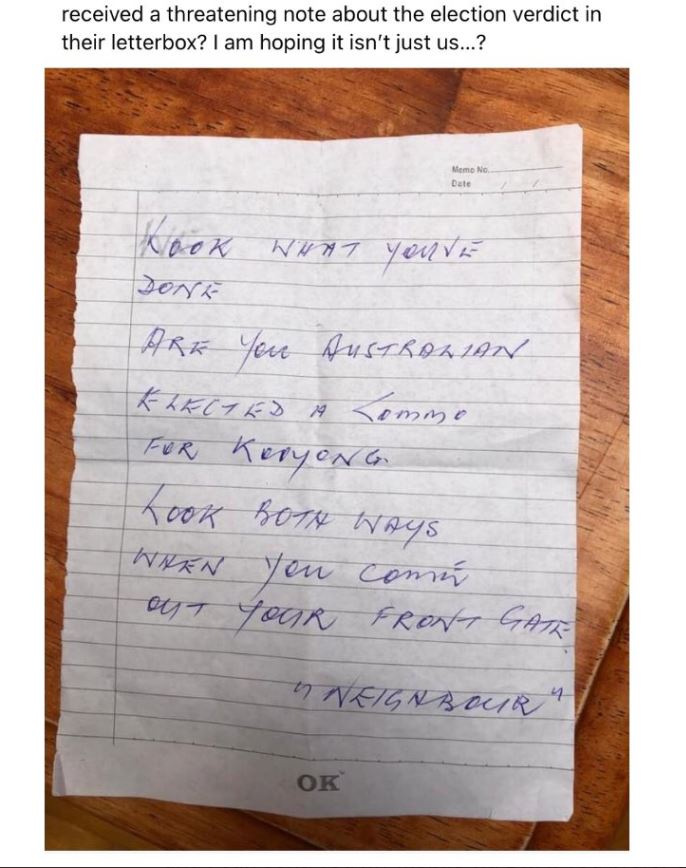 received a threatening note about the election verdict in
their letterbox? I am hoping it isn't just us...?
Memo No.
Date / /
LOOK WHAT YOU'VE
DONE
ARE YOU AUSTRALIAN
ELECTED A COMMO
FOR KOOYONG.
LOOK BOTH WAYS
WHEN YOU COME
OUT YOUR FRONT GATE.
"NEIGHBOUR"
OK